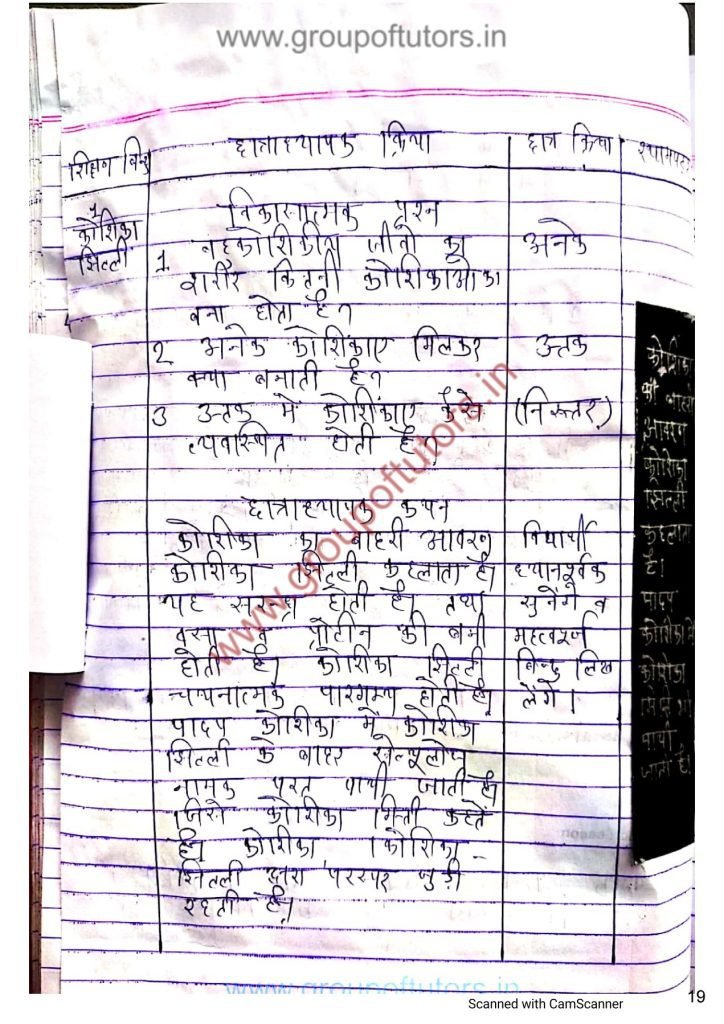 www.groupoftutors.in
शिक्षण बिन्दु
छात्राध्यापक क्रिया
छात्र क्रिया
श्यामपट्ट
1
कोशिका
झिल्ली
विकासात्मक प्रश्न
1. बहुकोशिकीय जीवो का
शरीर कितनी कोशिकाओ का
बना होता है?
अनेक
2 अनेक कोशिकाए मिलकर
क्या बनाती है?
उत्तक
3 उत्तक में कोशिकाए कैसे
व्यवस्थित होती है?
(निरूत्तर)
छात्राध्यापक कथन
कोशिका का बाहरी आवरण
कोशिका झिल्ली कहलाता है।
यह सरन्ध्र होती है। तथा
वसा व प्रोटीन की बनी
होती है। कोशिका झिल्ली
चयनात्मक पारगम्य होती है।
पादप कोशिका में कोशिका
झिल्ली के बाहर सेल्यूलोज
नामक परत पायी जाती है।
जिसे कोशिका भित्ती कहते
है। कोशिका कोशिका
झिल्ली द्वारा परस्पर जुड़ी
रहती है।
विद्यार्थी
ध्यानपूर्वक
सुनेंगे व
महत्वपूर्ण
बिन्दु लिख
लेंगे।
कोशिका
की बाहरी
आवरण
कोशिका
झिल्ली
कहलाता
है।
पादप
कोशिका में
कोशिका
पायी
जाती है।
www.groupoftutors.in
www.groupoftutors.in
Scanned with CamScanner
19